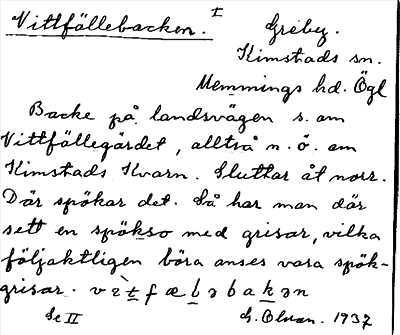 Vittfällebacken. I Greby.
Kimstads sn.
Memmings hd. Ögl
Backe på landsvägen s. om
Vittfällegärdet, alltså n. ö. om
Kimstads Kvarn. Sluttar åt norr.
Där spökar det. Så har man där
sett en spökso med grisar, vilka
följaktligen böra anses vara spök-
grisar. vìtfæbəbakən
Se II G. Olson. 1937